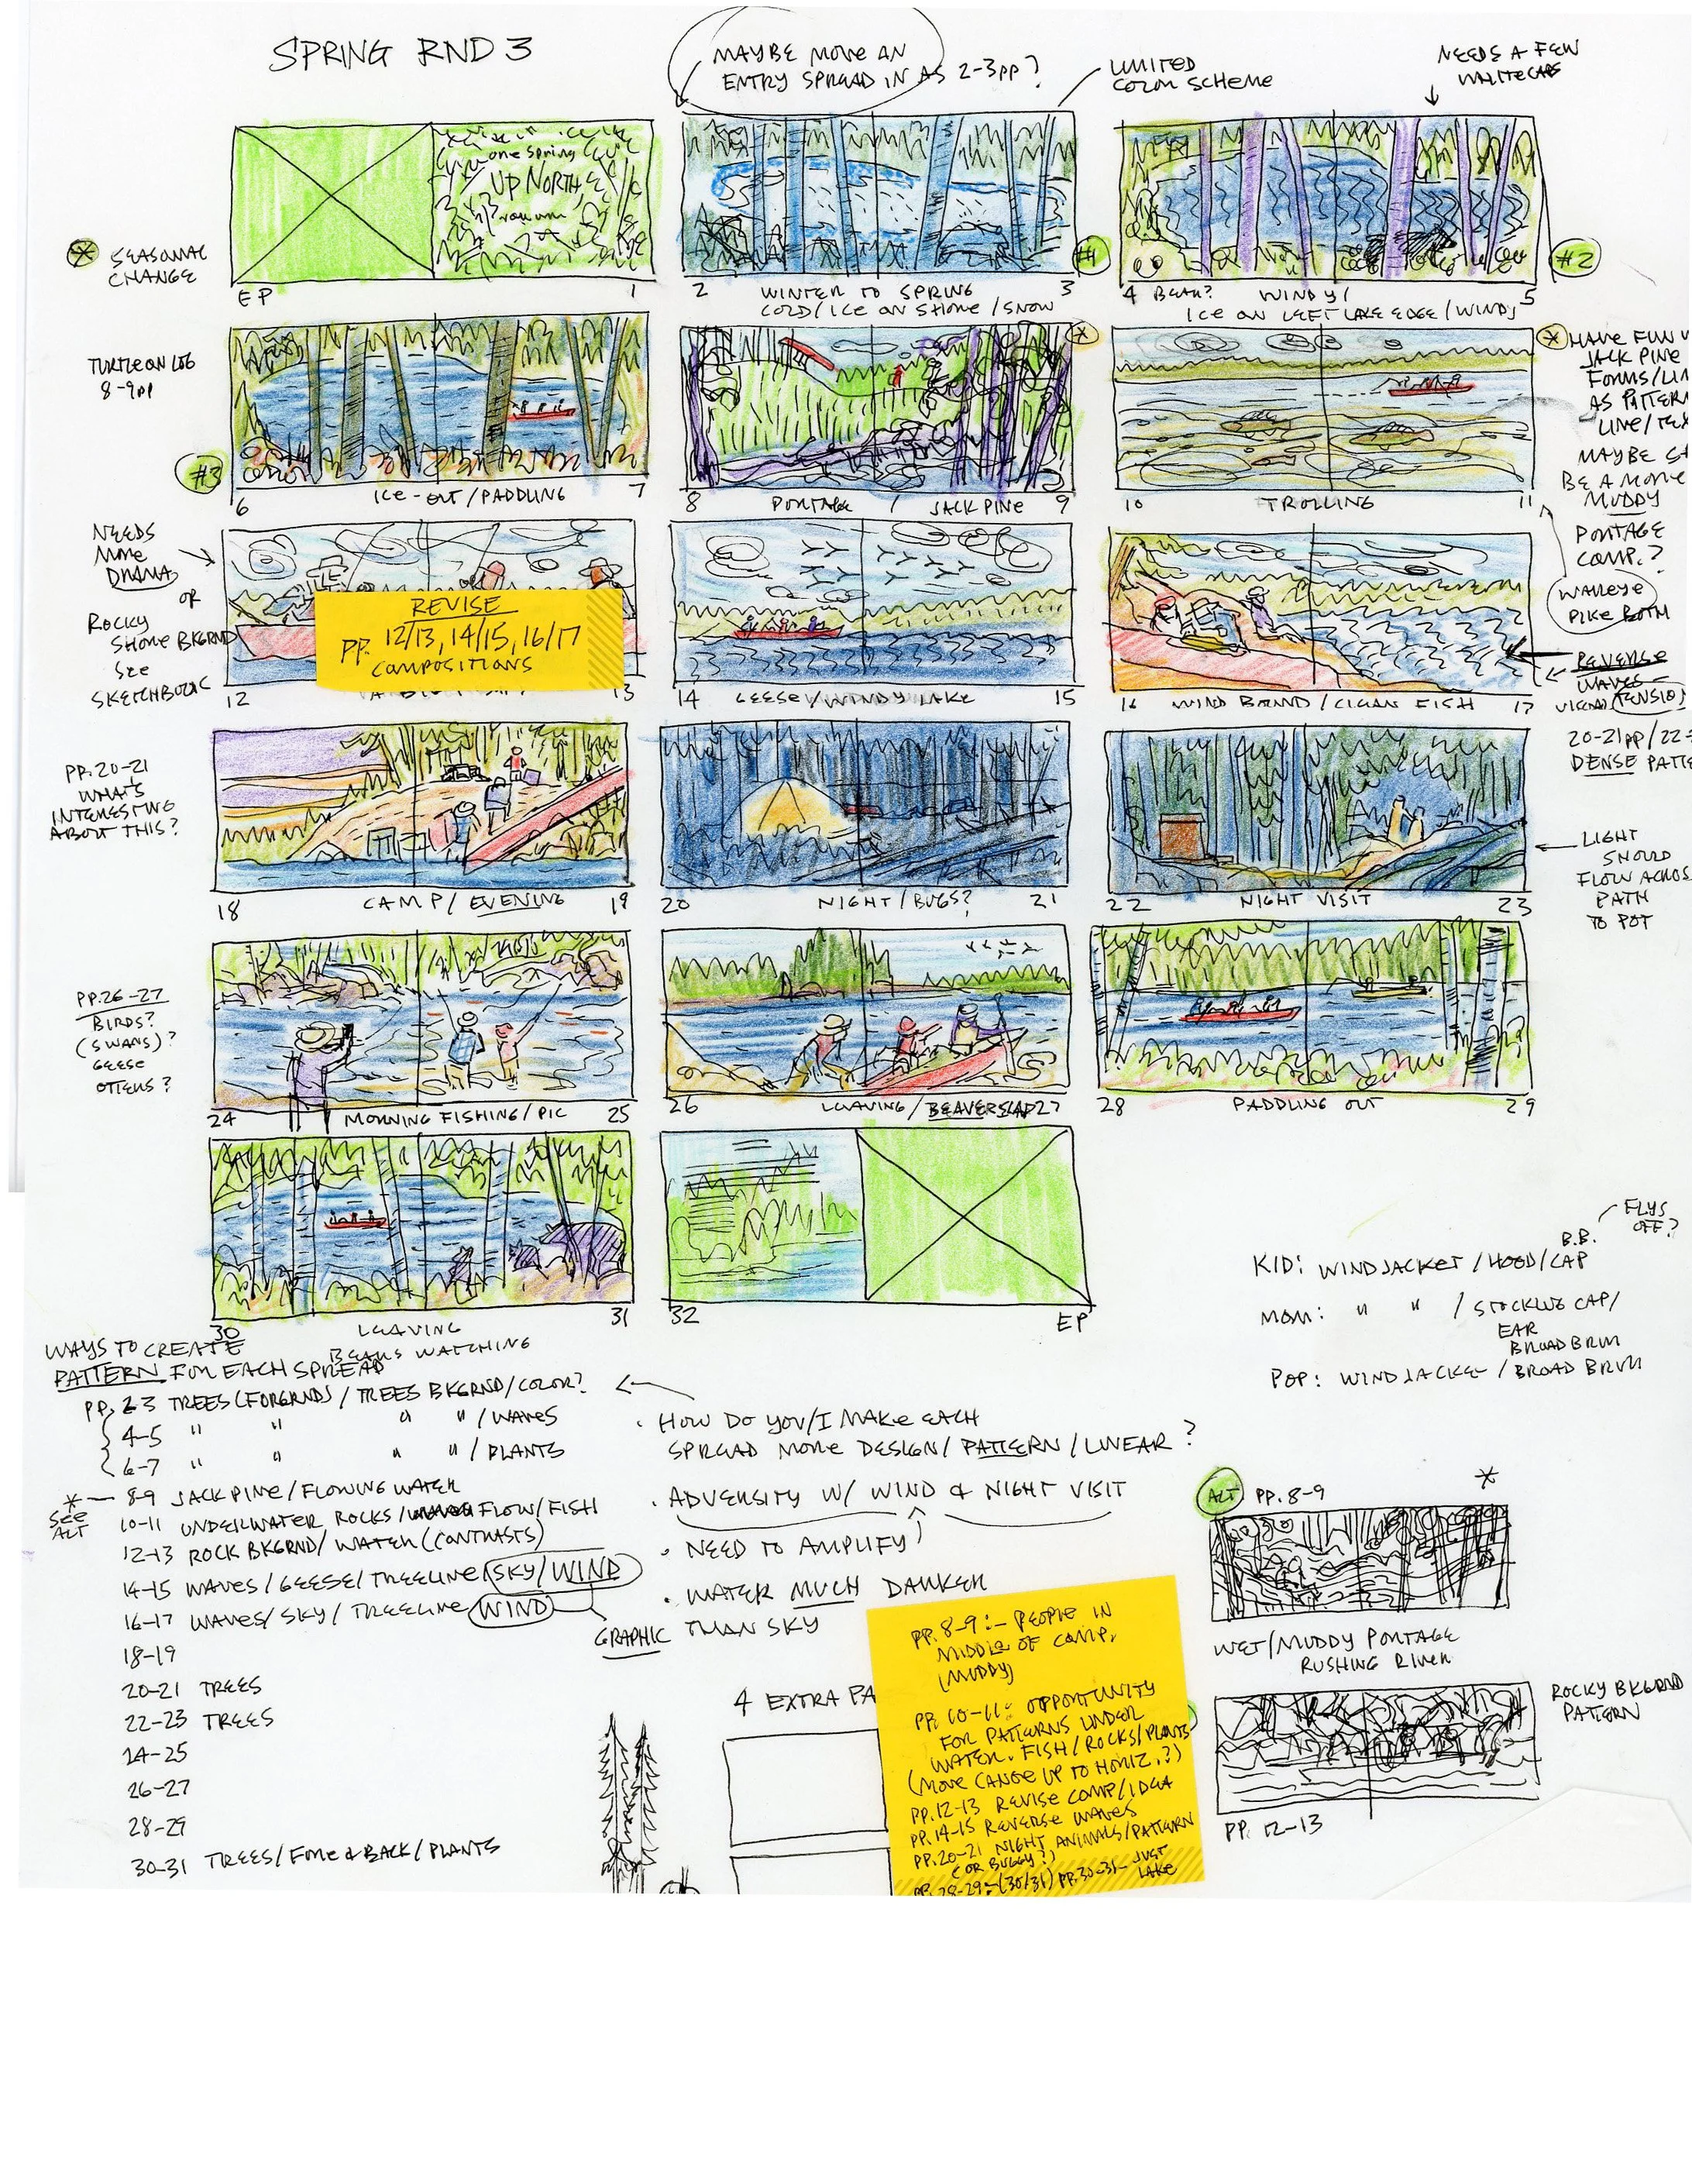 SPRING RND 3
MAYBE MOVE AN
ENTRY SPREAD IN AS 2-3pp?
LIMITED
COLOR SCHEME
NEEDS A FEW
WHITECAPS
SEASONAL
CHANGE
one spring
UP NORTH
EP
1
2
WINTER TO SPRING
3
COLD/ICE ON SHORE/SNOW
#1
4 BEAR?
WINDY/
5
ICE ON LEFT LAKE EDGE/WINDY
#2
TURTLE ON LOG
8-9pp
#3
6
ICE-OUT/PADDLING
7
8
PORTAGE / JACK PINE
9
10
TROLLING
11
HAVE FUN
JACK PINE
FORMS/
AS PATTERN
LINE/
MAYBE
BE A MORE
MUDDY
PORTAGE
COMP.?
WALLEYE
PIKE BOTH
NEEDS
MORE
DRAMA
OR
ROCKY
SHORE BKGRND
SEE
SKETCHBOOK
REVISE
PP. 12/13, 14/15, 16/17
COMPOSITIONS
12
13
14
GEESE/WINDY LAKE
15
16
WIND BOUND/CLEAN FISH
17
REVERSE
WAVES
TENSION
PP. 20-21
WHAT'S
INTERESTING
ABOUT THIS?
20-21pp/22-
DENSE
18
CAMP/EVENING
19
20
NIGHT/BUGS?
21
22
NIGHT VISIT
23
LIGHT
SHOULD
FLOW ACROSS
PATH
TO POT
PP. 26-27
BIRDS?
(SWANS)?
GEESE
OTTERS?
24
MORNING FISHING/PIC
25
26
LEAVING/BEAVERS
27
28
PADDLING OUT
29
30
LEAVING
31
BEARS WATCHING
32
EP
FLYS
OFF?
B.B.
KID: WINDJACKET/HOOD/CAP
MOM: " " / STOCKING CAP/
EAR
BROAD BRIM
POP: WINDJACKET/BROAD BRIM
WAYS TO CREATE
PATTERN FOR EACH SPREAD
PP. 2-3 TREES (FORGRND)/TREES BKGRND/COLOR?
4-5 " " " "/WAVES
6-7 " " " "/PLANTS
* — 8-9 JACK PINE/FLOWING WATER
SEE
ALT
10-11 UNDERWATER ROCKS/ FLOW/FISH
12-13 ROCK BKGRND/WATER (CONTRASTS)
14-15 WAVES/GEESE/TREELINE/SKY/WIND
16-17 WAVES/SKY/TREELINE/WIND
GRAPHIC
18-19
20-21 TREES
22-23 TREES
24-25
26-27
28-29
30-31 TREES/FORE & BACK/PLANTS
. HOW DO YOU/I MAKE EACH
SPREAD MORE DESIGN/PATTERN/LINEAR?
. ADVERSITY W/ WIND & NIGHT VISIT
. NEED TO AMPLIFY
. WATER MUCH DARKER
THAN SKY
4 EXTRA PA
PP. 8-9:- PEOPLE IN
MIDDLE OF COMP.
(MUDDY)
PP. 10-11: OPPORTUNITY
FOR PATTERNS UNDER
WATER. FISH/ROCKS/PLANTS
(MOVE CANOE UP TO HORIZ.?)
PP. 12-13 REVISE COMP/IDEA
PP. 14-15 REVERSE WAVES
PP. 20-21 NIGHT ANIMALS/PATTERN
(OR BUGGY?)
PP. 28-29:-(30/31) PP. 30-31- JUST
LAKE
ALT PP. 8-9 *
WET/MUDDY PORTAGE
RUSHING RIVER
ROCKY BKGRND
PATTERN
PP. 12-13